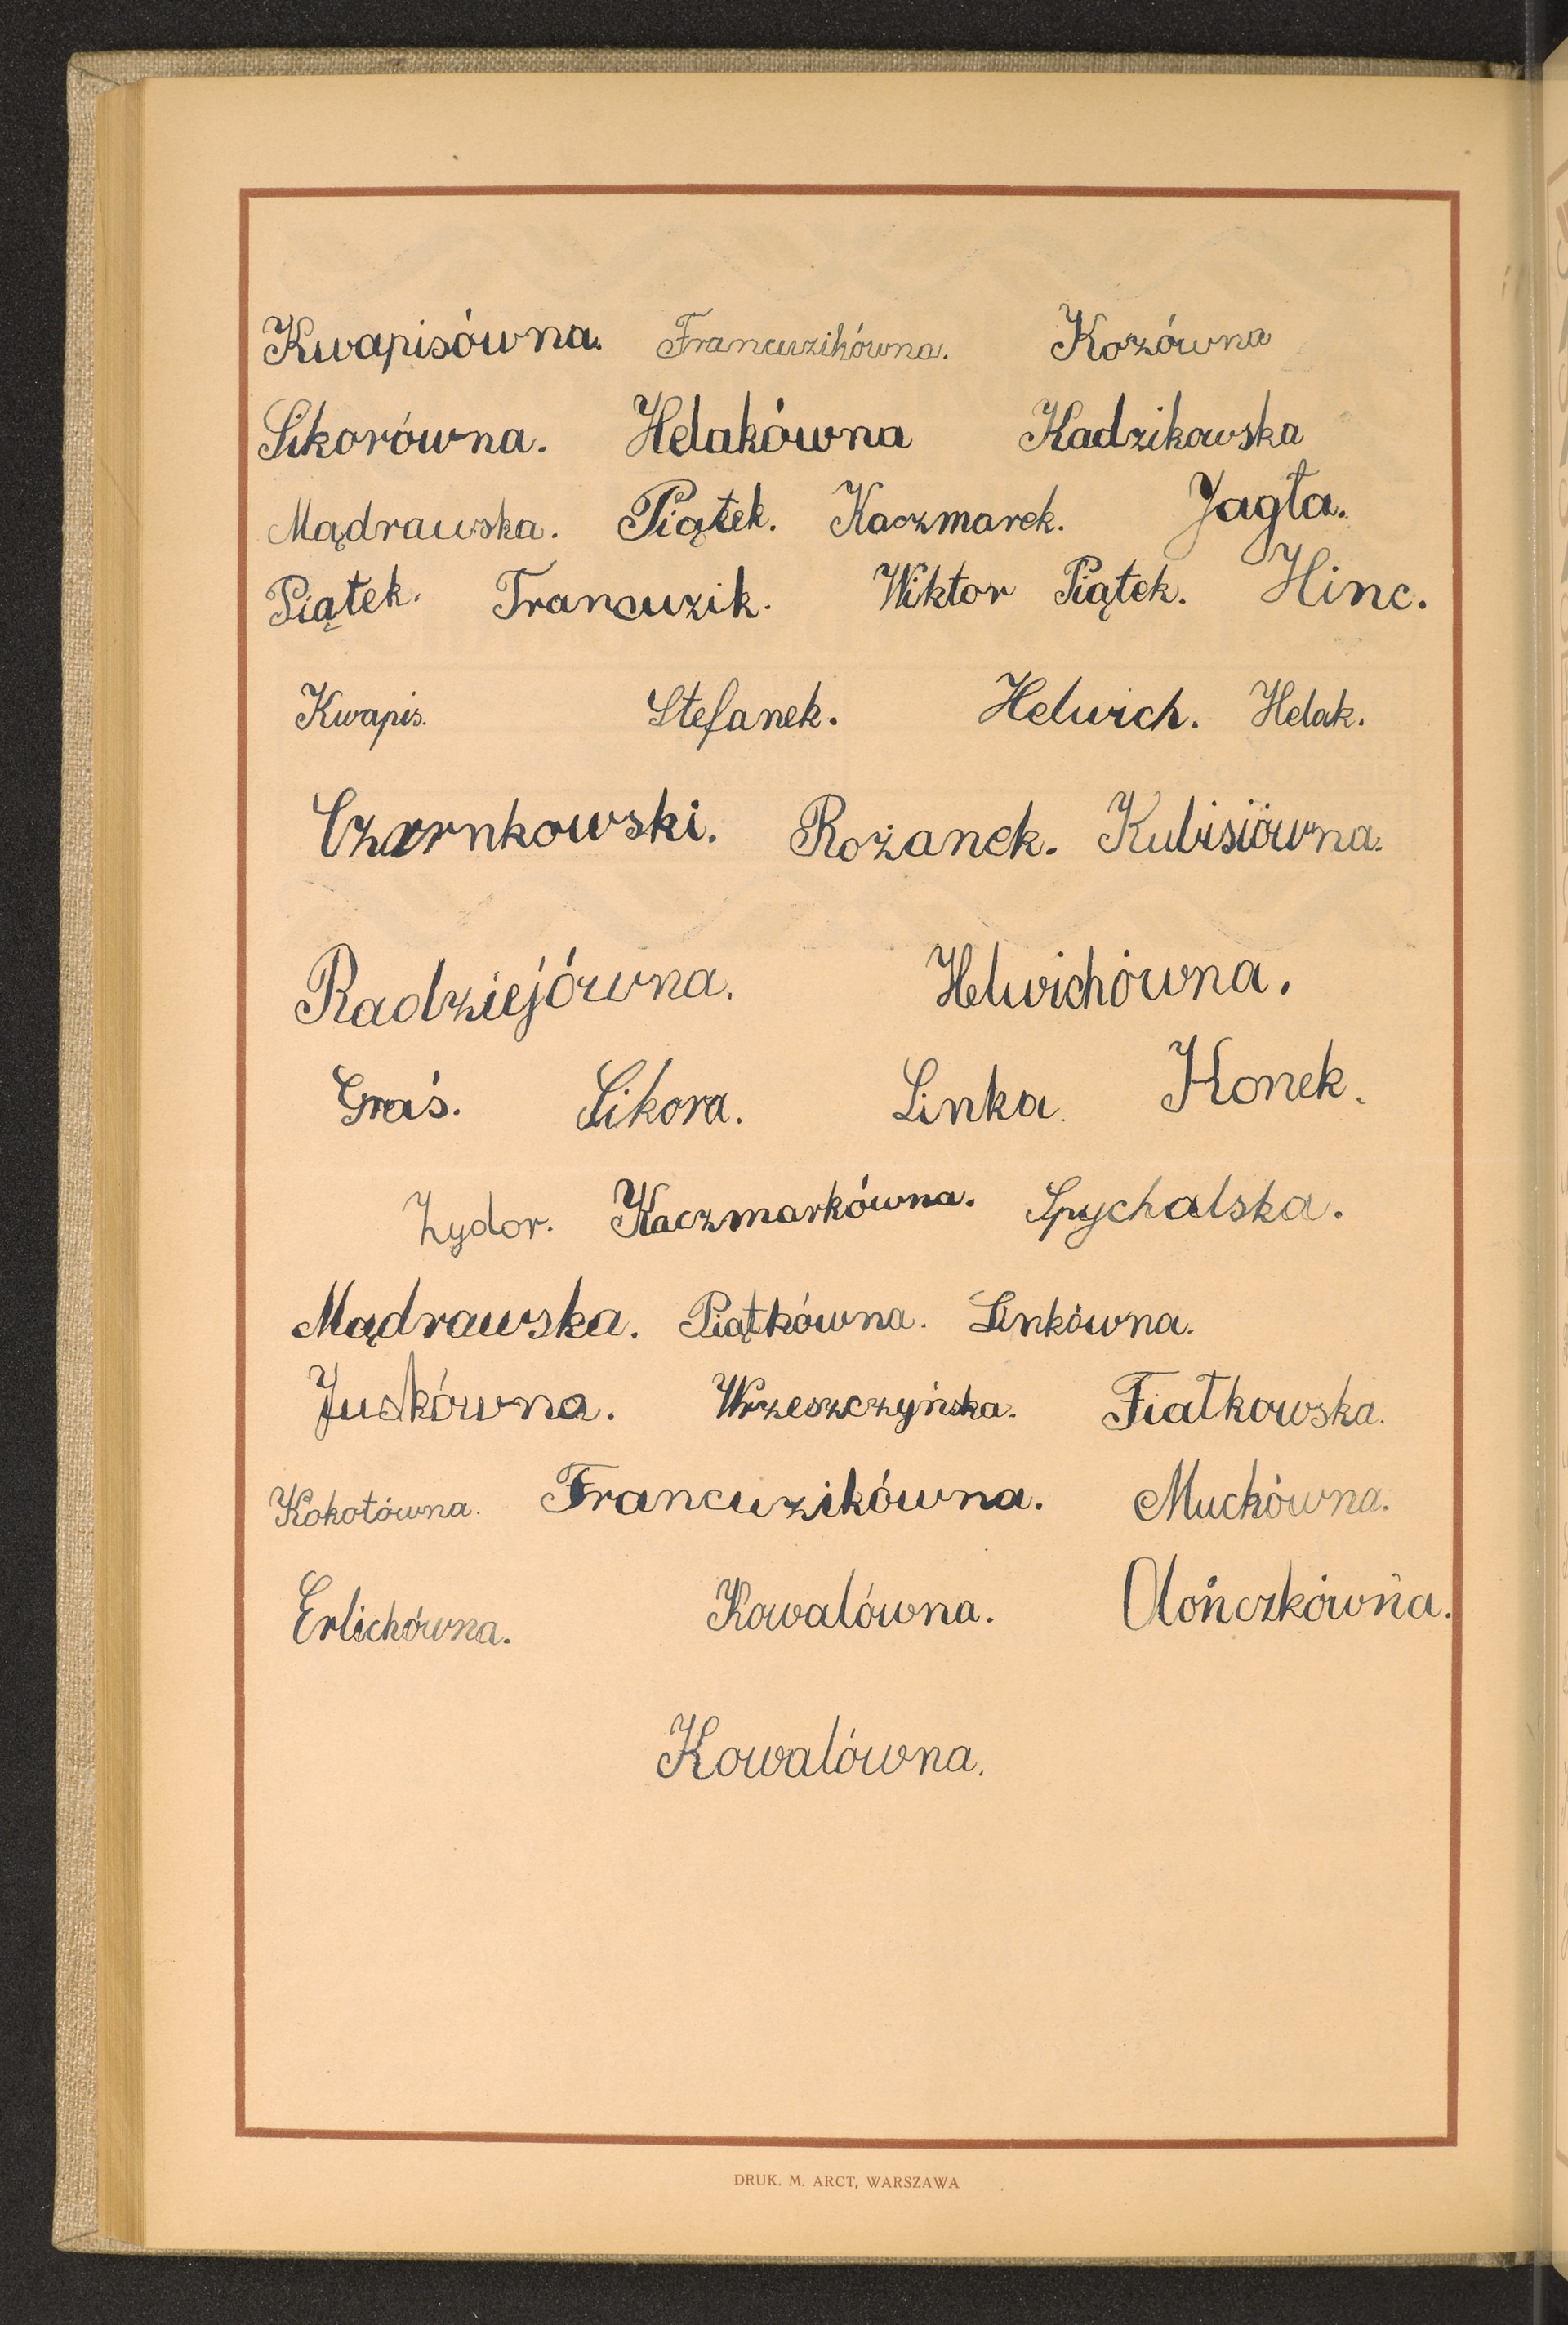 Kwapisówna. Francuzikówna. Kozówna
Sikorówna. Helakówna Kadzikowska
Mądrawska. Piątek. Kaczmarek. Jagła.
Piątek. Francuzik. Wiktor Piątek. Hinc.
Kwapis. Stefanek. Helwich. Helak.
Czarnkowski. Rożanek. Kubisiówna.
Radziejówna. Helwichówna.
Graś. Sikora. Linka. Konek.
Zydor. Kaczmarkówna. Spychalska.
Mądrawska. Piątkówna. Linkówna.
Juskówna. Wrzeszczyńska. Fiałkowska.
Kokotówna. Francuzikówna. Muchówna.
Erlichówna. Kowalówna. Olończkówna.
Kowalówna.
DRUK. M. ARCT, WARSZAWA